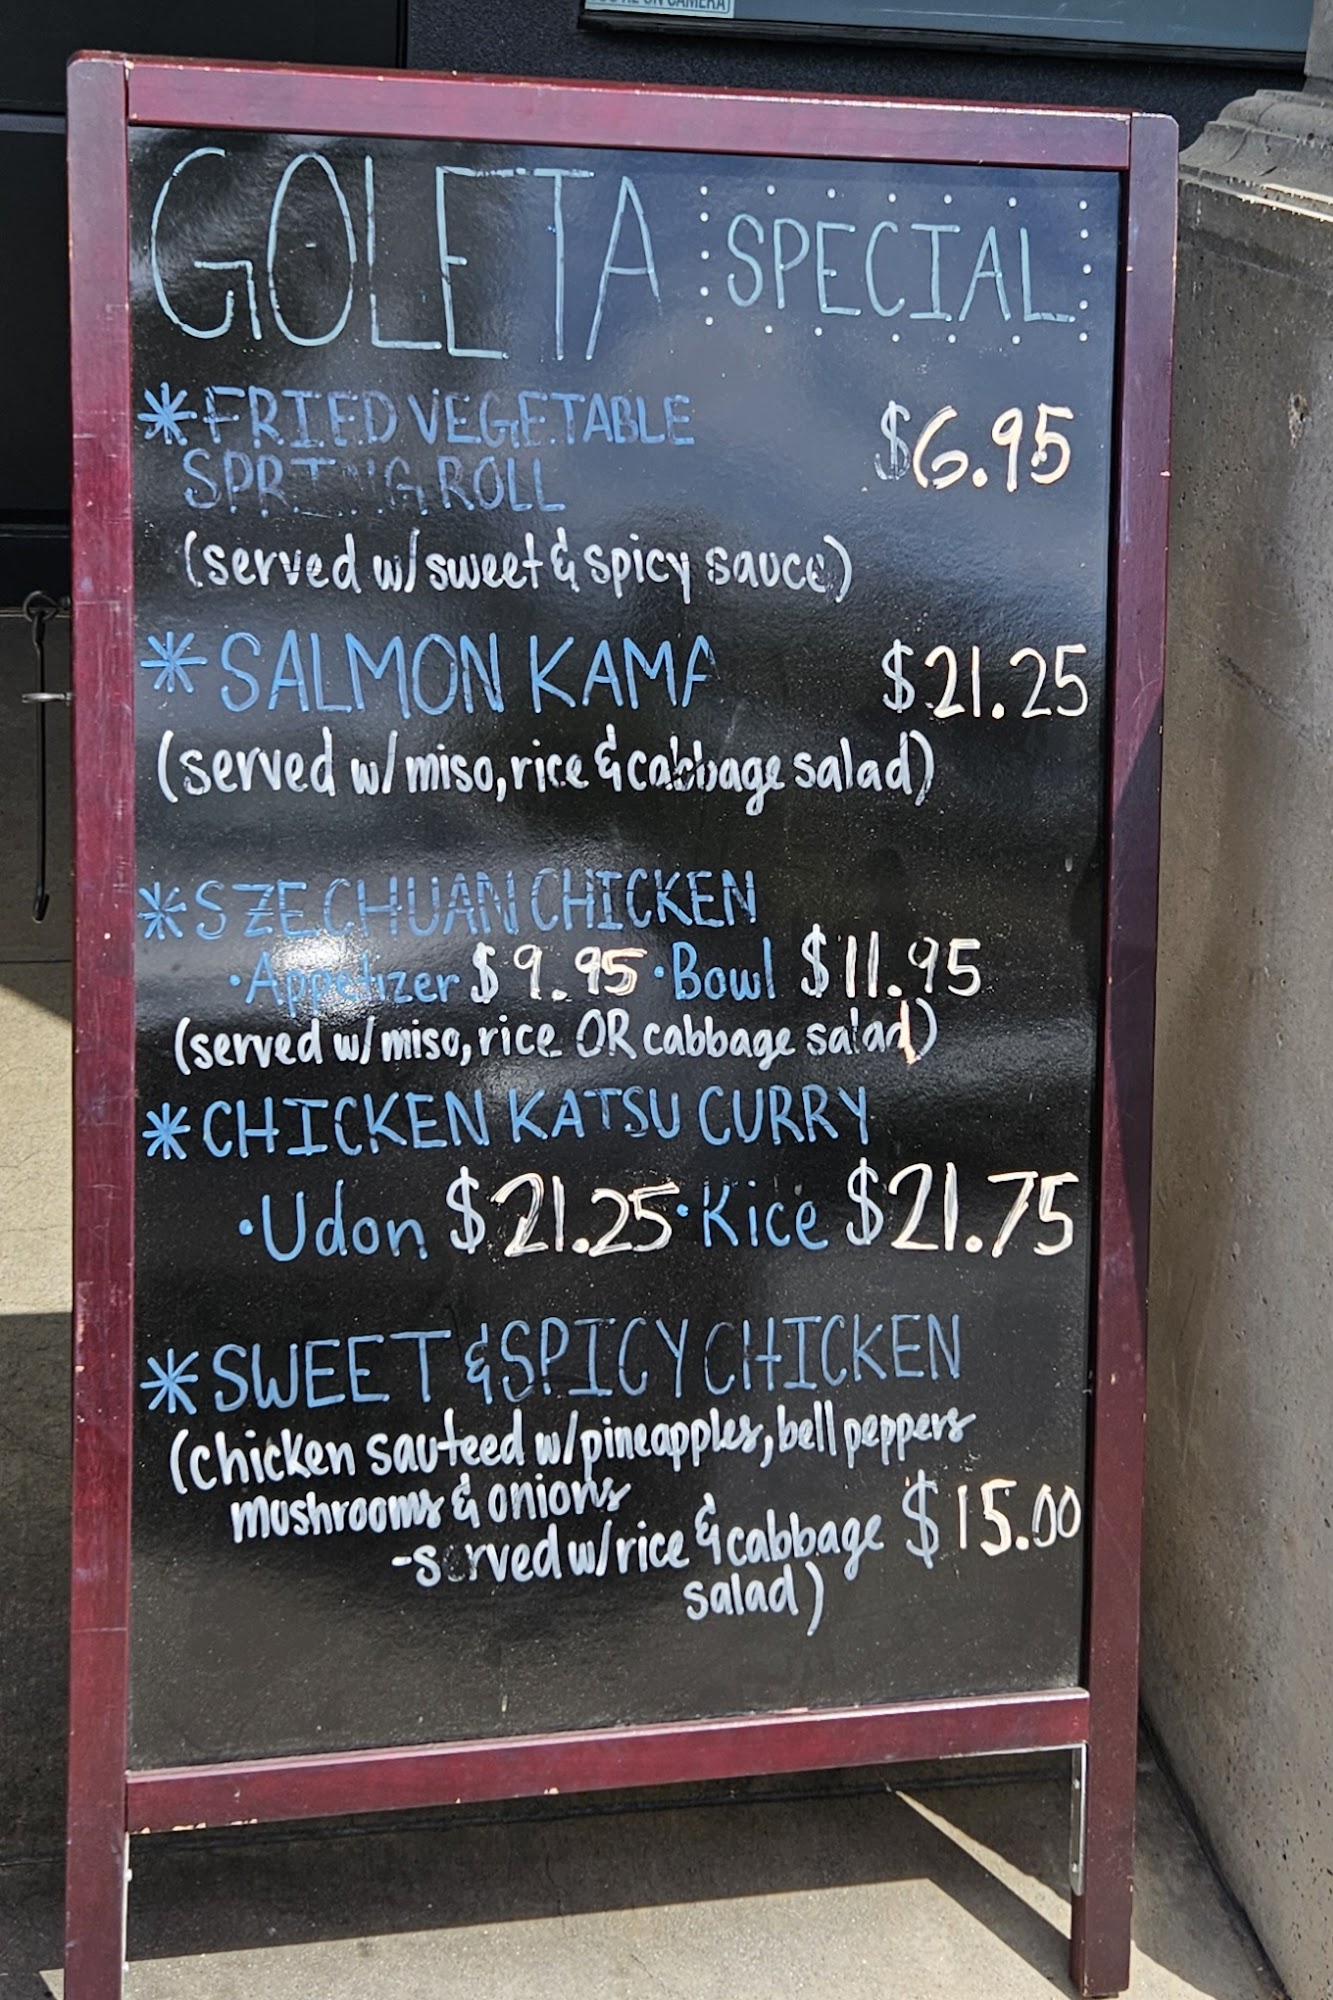 YOU'RE ON CAMERA)
GOLETA SPECIAL
*FRIED VEGETABLE $6.95
SPRING ROLL
(served w/ sweet & spicy sauce)
*SALMON KAMA $21.25
(served w/ miso, rice & cabbage salad)
*SZECHUAN CHICKEN
·Appetizer $9.95 ·Bowl $11.95
(served w/ miso, rice OR cabbage salad)
*CHICKEN KATSU CURRY
·Udon $21.25 ·Rice $21.75
*SWEET & SPICY CHICKEN
(chicken sauteed w/ pineapples, bell peppers
mushrooms & onions
-served w/ rice & cabbage $15.00
salad)